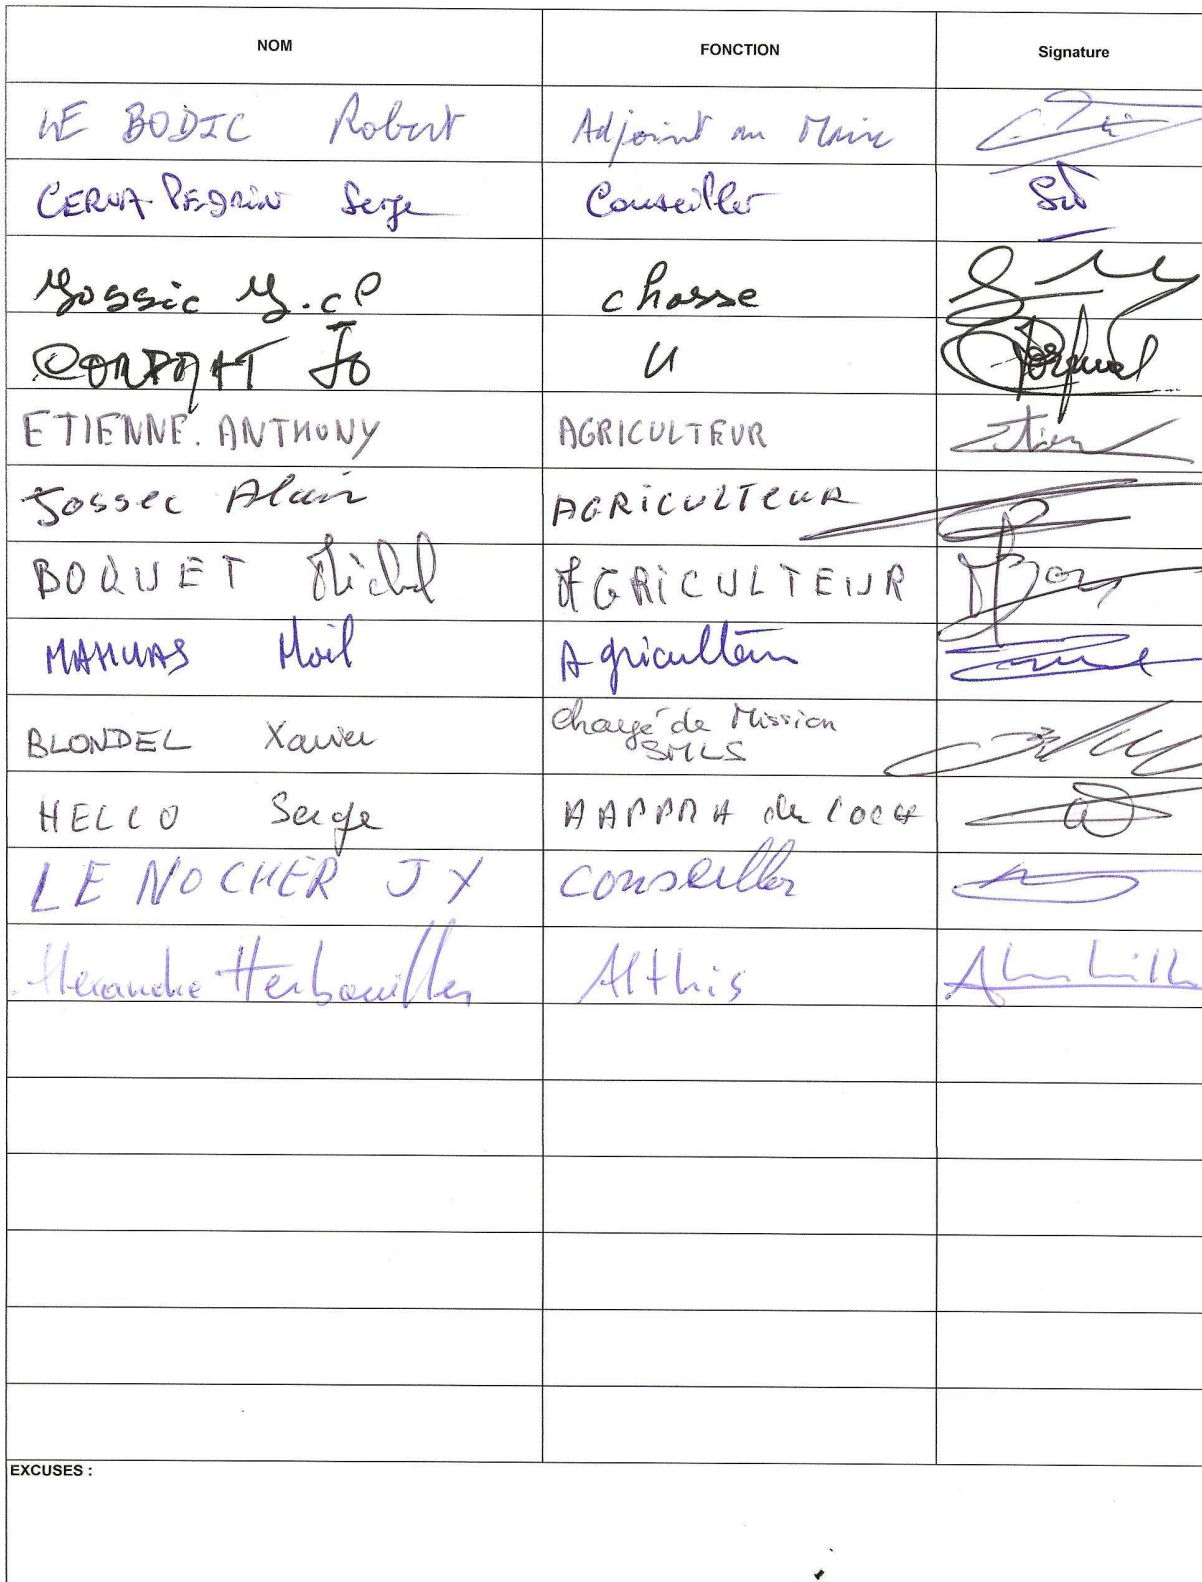 NOM FONCTION Signature
LE BODIC Robert Adjoint au Maire
CERVA-PEDRIN Serge Conseiller
chasse
Jo
ETIENNE. ANTHONY AGRICULTEUR
Jossec Alain AGRICULTEUR
BOQUET Michel AGRICULTEUR
MAHUAS Agriculteur
BLONDEL Xavier Chargé de Mission
SMLS
HELLO Serge AAPPMA du Loch
LE NOCHER J Y conseiller
Alexandre Herbouiller Althis
EXCUSES :